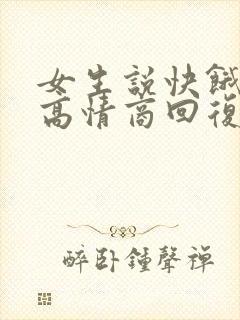 女生説快餓
高情商回復
醉卧鐘聲禪